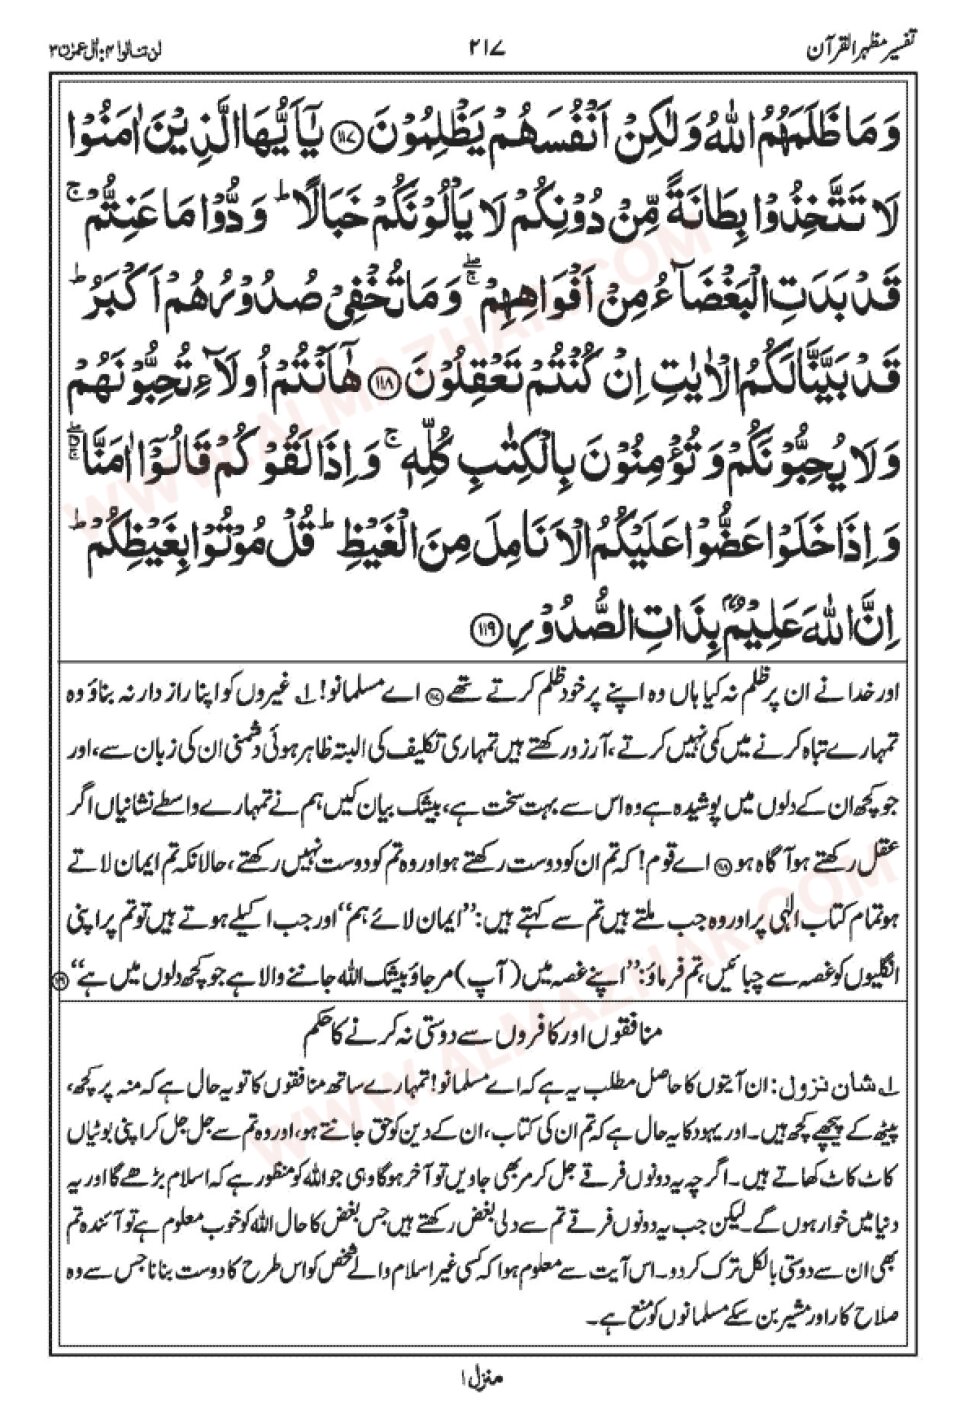 تفسیر مظہر القرآن
۲۱۷
لن تنالوا ۴: آل عمرٰن ۳
وَمَا ظَلَمَهُمُ اللّٰهُ وَلٰكِنْ اَنْفُسَهُمْ يَظْلِمُوْنَ ﴿۱۱۷﴾ يٰۤاَيُّهَا الَّذِيْنَ اٰمَنُوْا
لَا تَتَّخِذُوْا بِطَانَةً مِّنْ دُوْنِكُمْ لَا يَاْلُوْنَكُمْ خَبَالًا ؕ وَدُّوْا مَا عَنِتُّمْ ۚ
قَدْ بَدَتِ الْبَغْضَآءُ مِنْ اَفْوَاهِهِمْ ۖۚ وَمَا تُخْفِيْ صُدُوْرُهُمْ اَكْبَرُ ؕ
قَدْ بَيَّنَّا لَكُمُ الْاٰيٰتِ اِنْ كُنْتُمْ تَعْقِلُوْنَ ﴿۱۱۸﴾ هٰۤاَنْتُمْ اُولَآءِ تُحِبُّوْنَهُمْ
وَلَا يُحِبُّوْنَكُمْ وَتُؤْمِنُوْنَ بِالْكِتٰبِ كُلِّهٖ ۚ وَاِذَا لَقُوْكُمْ قَالُوْۤا اٰمَنَّا ۖۚ
وَاِذَا خَلَوْا عَضُّوْا عَلَيْكُمُ الْاَنَامِلَ مِنَ الْغَيْظِ ؕ قُلْ مُوْتُوْا بِغَيْظِكُمْ ؕ
اِنَّ اللّٰهَ عَلِيْمٌۢ بِذَاتِ الصُّدُوْرِ ﴿۱۱۹﴾
اور خدا نے ان پر ظلم نہ کیا ہاں وہ اپنے پر خود ظلم کرتے تھے ﴿۱۱۷﴾ اے مسلمانو! ۱؎ غیروں کو اپنا راز دار نہ بناؤ وہ
تمہارے تباہ کرنے میں کمی نہیں کرتے، آرزو رکھتے ہیں تمہاری تکلیف کی البتہ ظاہر ہوئی دشمنی ان کی زبان سے، اور
جو کچھ ان کے دلوں میں پوشیدہ ہے وہ اس سے بہت سخت ہے، بیشک بیان کیں ہم نے تمہارے واسطے نشانیاں اگر
عقل رکھتے ہو آگاہ ہو ﴿۱۱۸﴾ اے قوم! کہ تم ان کو دوست رکھتے ہو اور وہ تم کو دوست نہیں رکھتے، حالانکہ تم ایمان لاتے
ہو تمام کتاب الٰہی پر اور وہ جب ملتے ہیں تم سے کہتے ہیں: ”ایمان لائے ہم“ اور جب اکیلے ہوتے ہیں تو تم پر اپنی
انگلیوں کو غصہ سے چبائیں، تم فرماؤ: ”اپنے غصہ میں (آپ) مرجاؤ بیشک اللہ جاننے والا ہے جو کچھ دلوں میں ہے“ ﴿۱۱۹﴾
منافقوں اور کافروں سے دوستی نہ کرنے کا حکم
۱؎ شان نزول: ان آیتوں کا حاصل مطلب یہ ہے کہ اے مسلمانو! تمہارے ساتھ منافقوں کا تو یہ حال ہے کہ منہ پر کچھ،
پیٹھ کے پیچھے کچھ ہیں۔ اور یہود کا یہ حال ہے کہ تم ان کی کتاب، ان کے دین کو حق جانتے ہو، اور وہ تم سے جل جل کر اپنی بوٹیاں
کاٹ کاٹ کھاتے ہیں۔ اگر چہ یہ دونوں فرقے جل کر مر بھی جاویں تو آخر ہوگا وہی جو اللہ کو منظور ہے کہ اسلام بڑھے گا اور یہ
دنیا میں خوار ہوں گے۔ لیکن جب یہ دونوں فرقے تم سے دلی بغض رکھتے ہیں جس بغض کا حال اللہ کو خوب معلوم ہے تو آئندہ تم
بھی ان سے دوستی بالکل ترک کردو۔ اس آیت سے معلوم ہوا کہ کسی غیر اسلام والے شخص کو اس طرح کا دوست بنانا جس سے وہ
صلاح کار اور مشیر بن سکے مسلمانوں کو منع ہے۔
منزل ۱
WWW.ALMAZHAR.COM
WWW.ALMAZHAR.COM